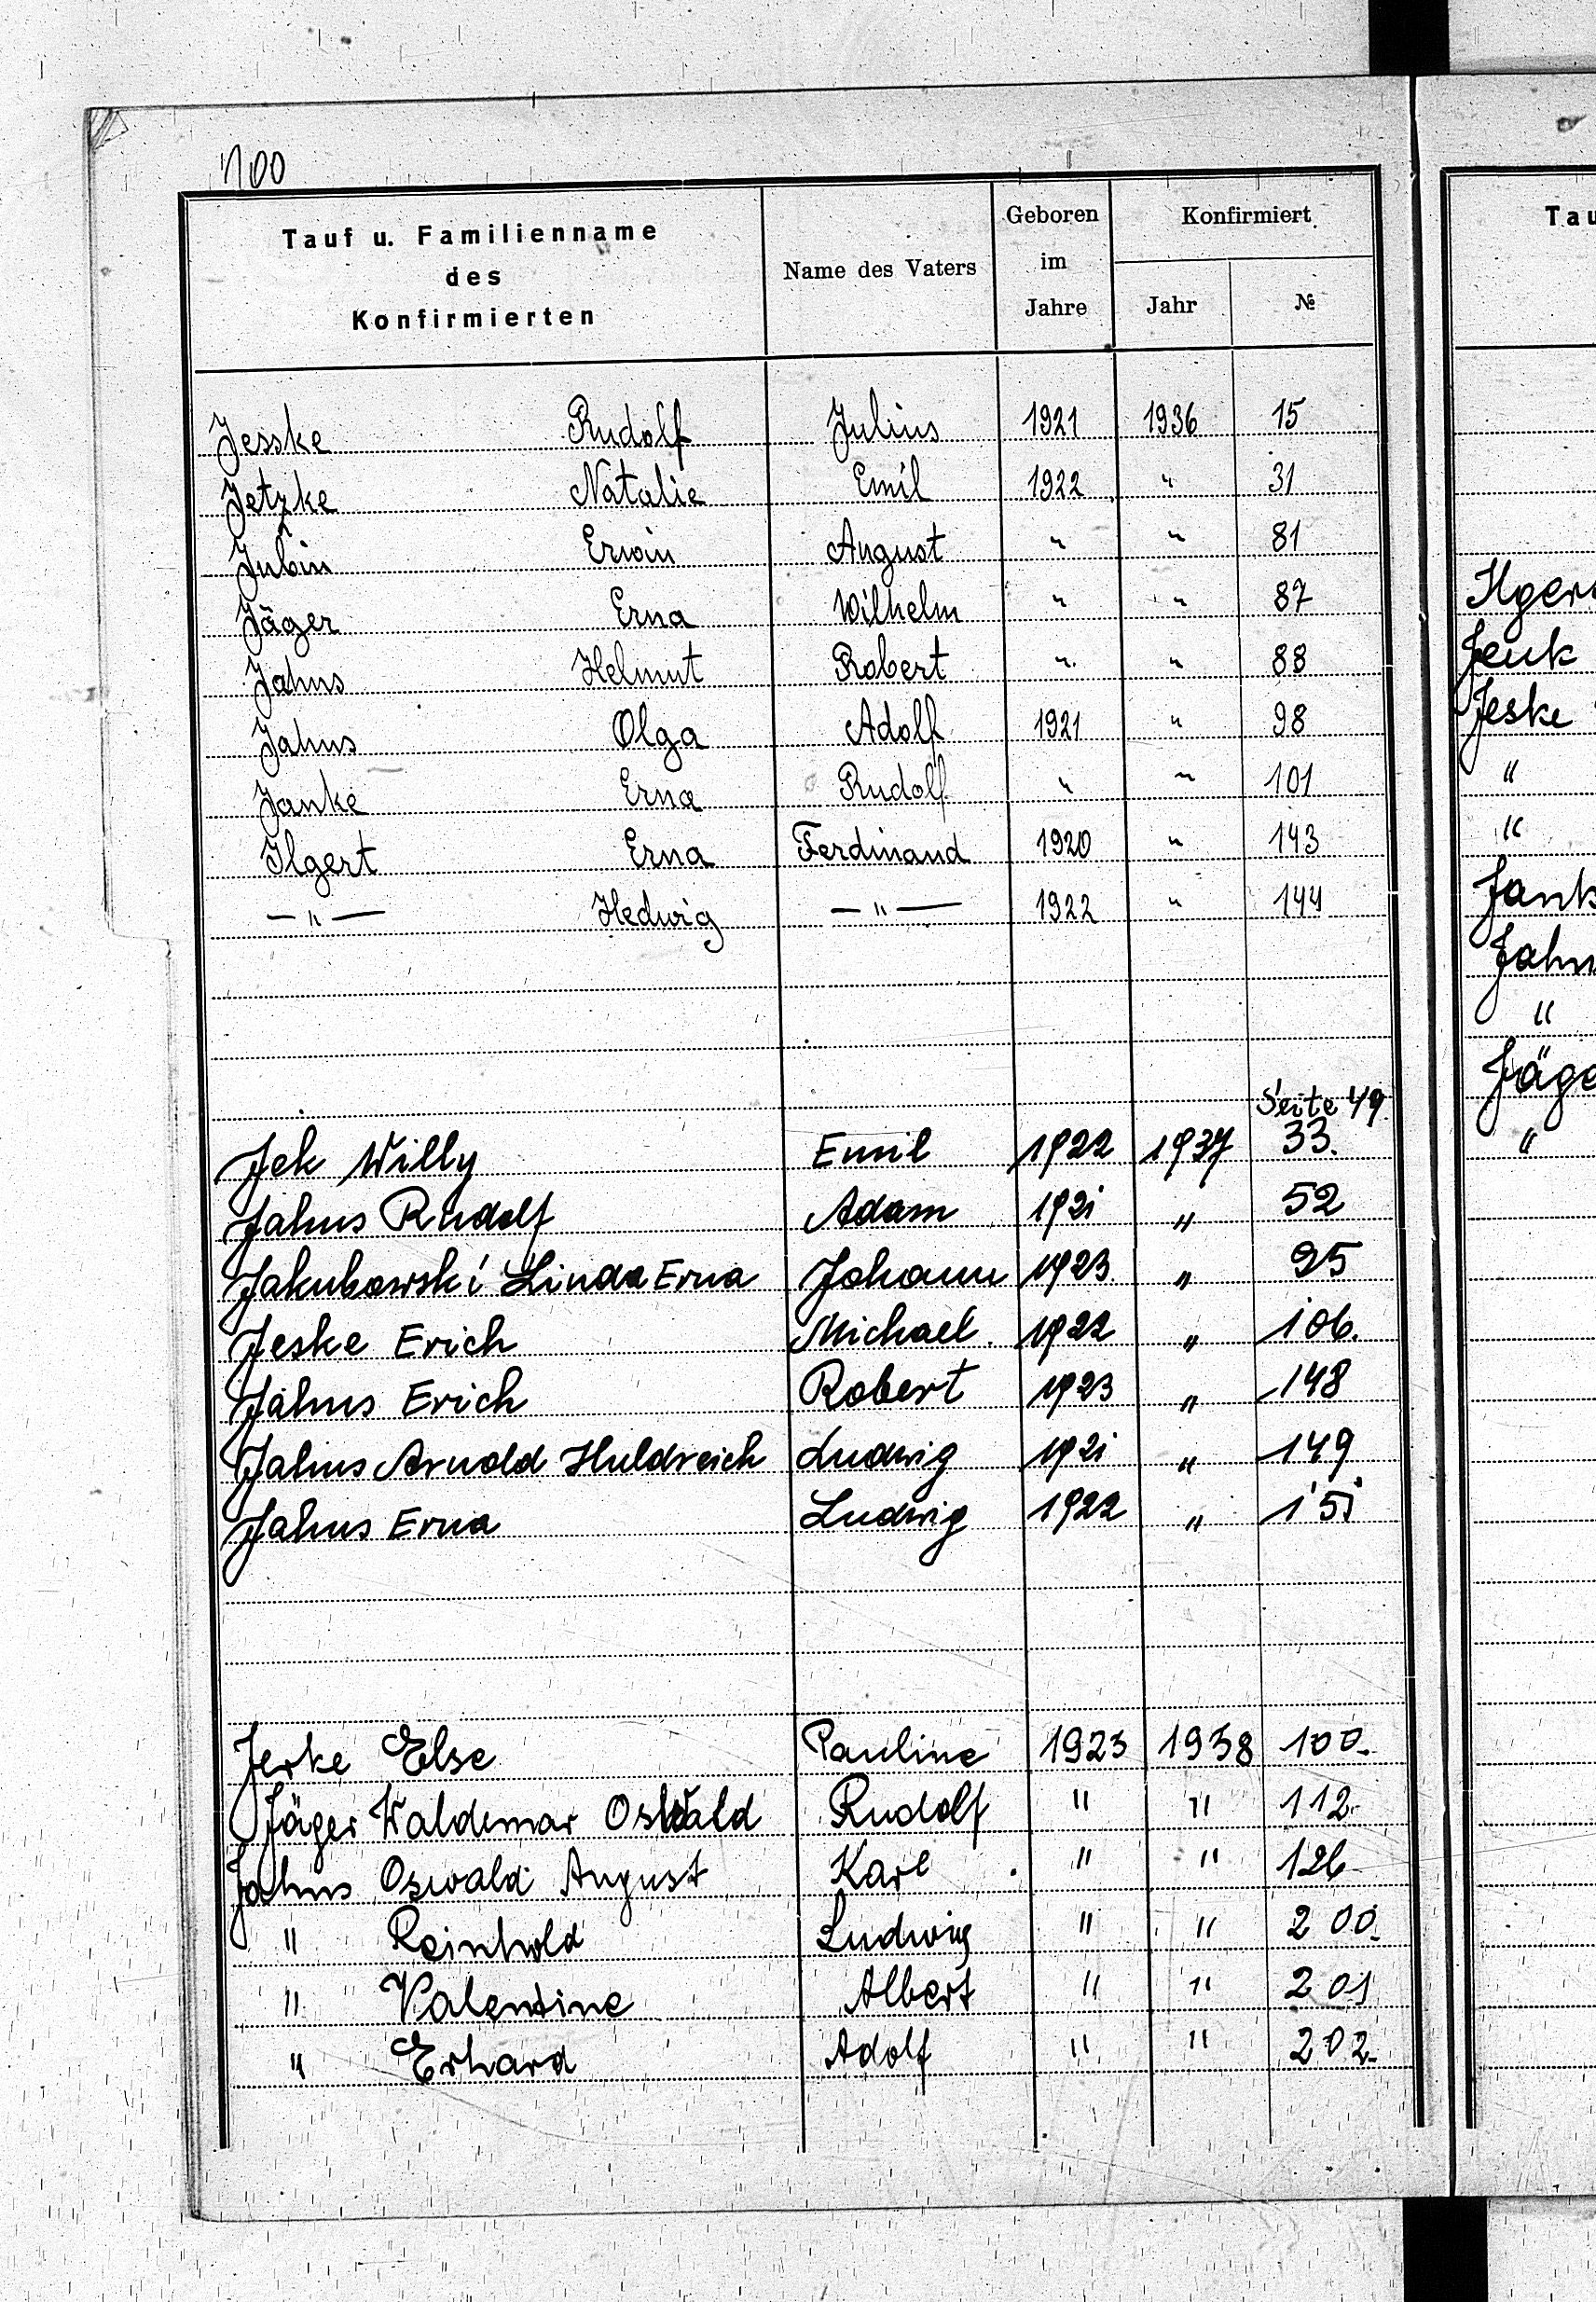 100
Tauf u. Familienname des Konfirmierten | Name des Vaters | Geboren im Jahre | Konfirmiert Jahr | №
Jesske Rudolf Julius 1921 1936 15
Jetzke Natalie Emil 1922 " 31
Jubin Erwin August " " 81
Jäger Erna Wilhelm " " 87
Jahns Helmut Robert " " 88
Jahns Olga Adolf 1921 " 98
Janke Erna Rudolf " " 101
Ilgert Erna Ferdinand 1920 " 143
—"— Hedwig —"— 1922 " 144
Seite 49
Jek Willy Emil 1922 1937 33.
Jahns Rudolf Adam 1921 " 52
Jakubowski Linda Erna Johann 1923 " 95
Jeske Erich Michael 1922 " 106.
Jahns Erich Robert 1923 " 148
Jahns Arnold Huldreich Ludwig 1921 " 149
Jahns Erna Ludwig 1922 " 151
Jerke Else Pauline 1923 1938 100.
Jäger Waldemar Oswald Rudolf " " 112.
Jahns Oswald August Karl " " 126
" Reinhold Ludwig " " 200.
" Valentine Albert " " 201
" Erhard Adolf " " 202.
Tau
Ilger
Jenk
Jeske
"
"
Jank
Jahn
"
Jäge
"